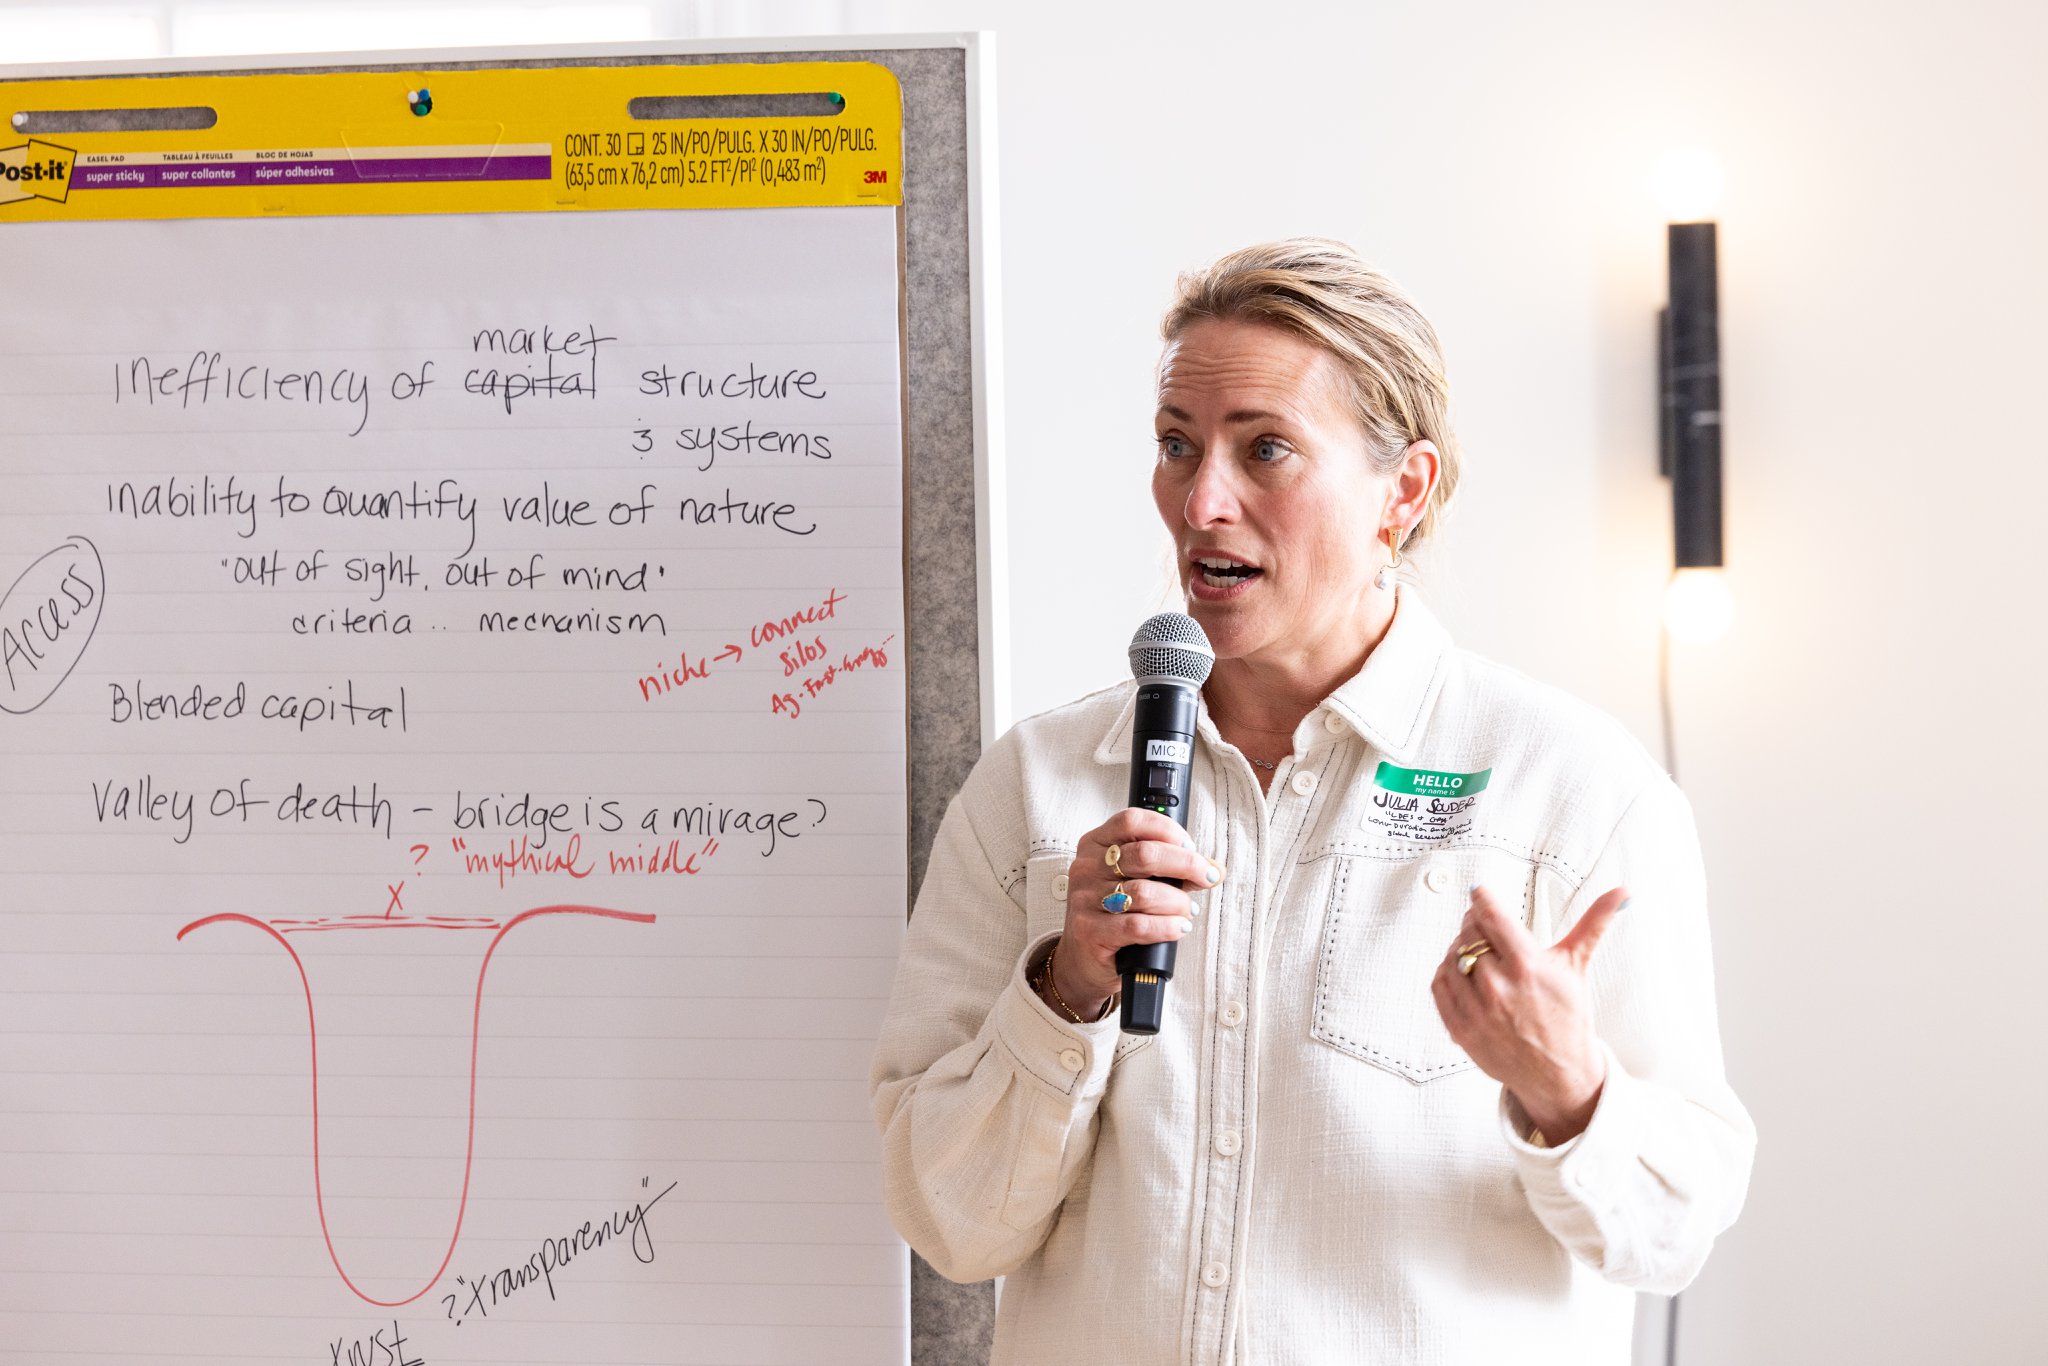 Post-it
EASEL PAD
super sticky
TABLEAU À FEUILLES
super collantes
BLOC DE HOJAS
súper adhesivas
CONT. 30 25 IN/PO/PULG. X 30 IN/PO/PULG.
(63,5 cm x 76,2 cm) 5.2 FT²/PI² (0,483 m²)
3M
market
Inefficiency of capital structure
& systems
Inability to Quantify value of nature
"out of sight, out of mind'
criteria .. mechanism
Access
niche → connect
silos
Ag.
Blended capital
Valley of death - bridge is a mirage?
? "mythical middle"
X
? "transparency"
trust
MIC 2
HELLO
my name is
JULIA SOUDER